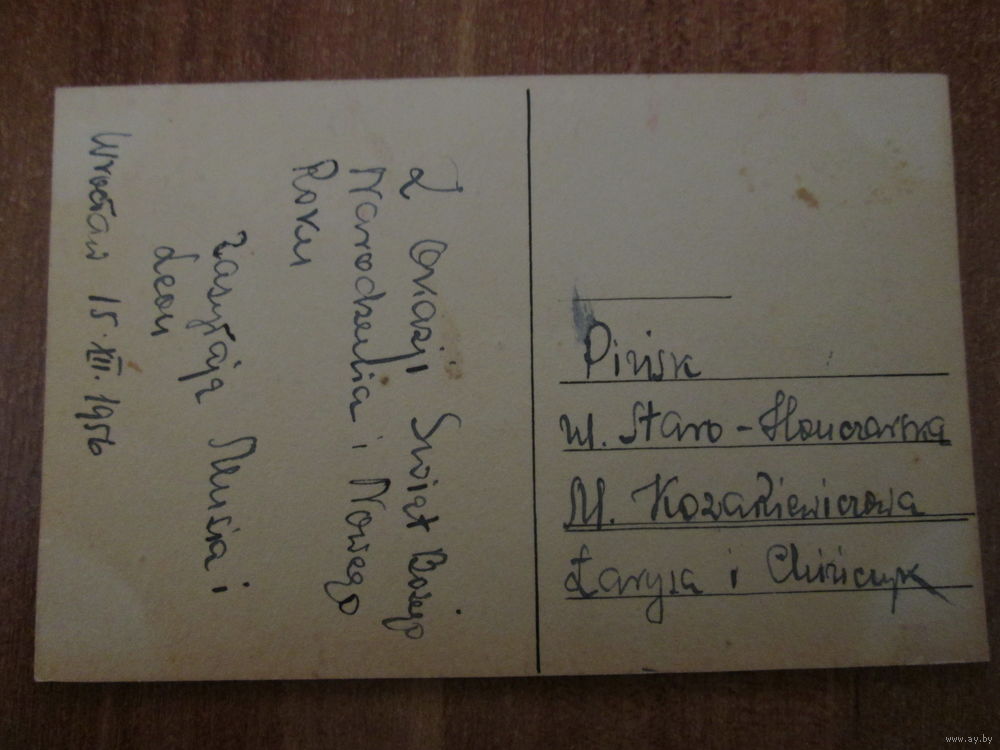 Z okazji Świąt Bożego
Narodzenia i Nowego
Roku
Zasyłają Musia i
Leon
Wrocław 15.XII.1956
Pińsk
ul. Staro-Honczarska
M. Kozakiewiczowa
Łarysa i Chińczyk
www.ay.by